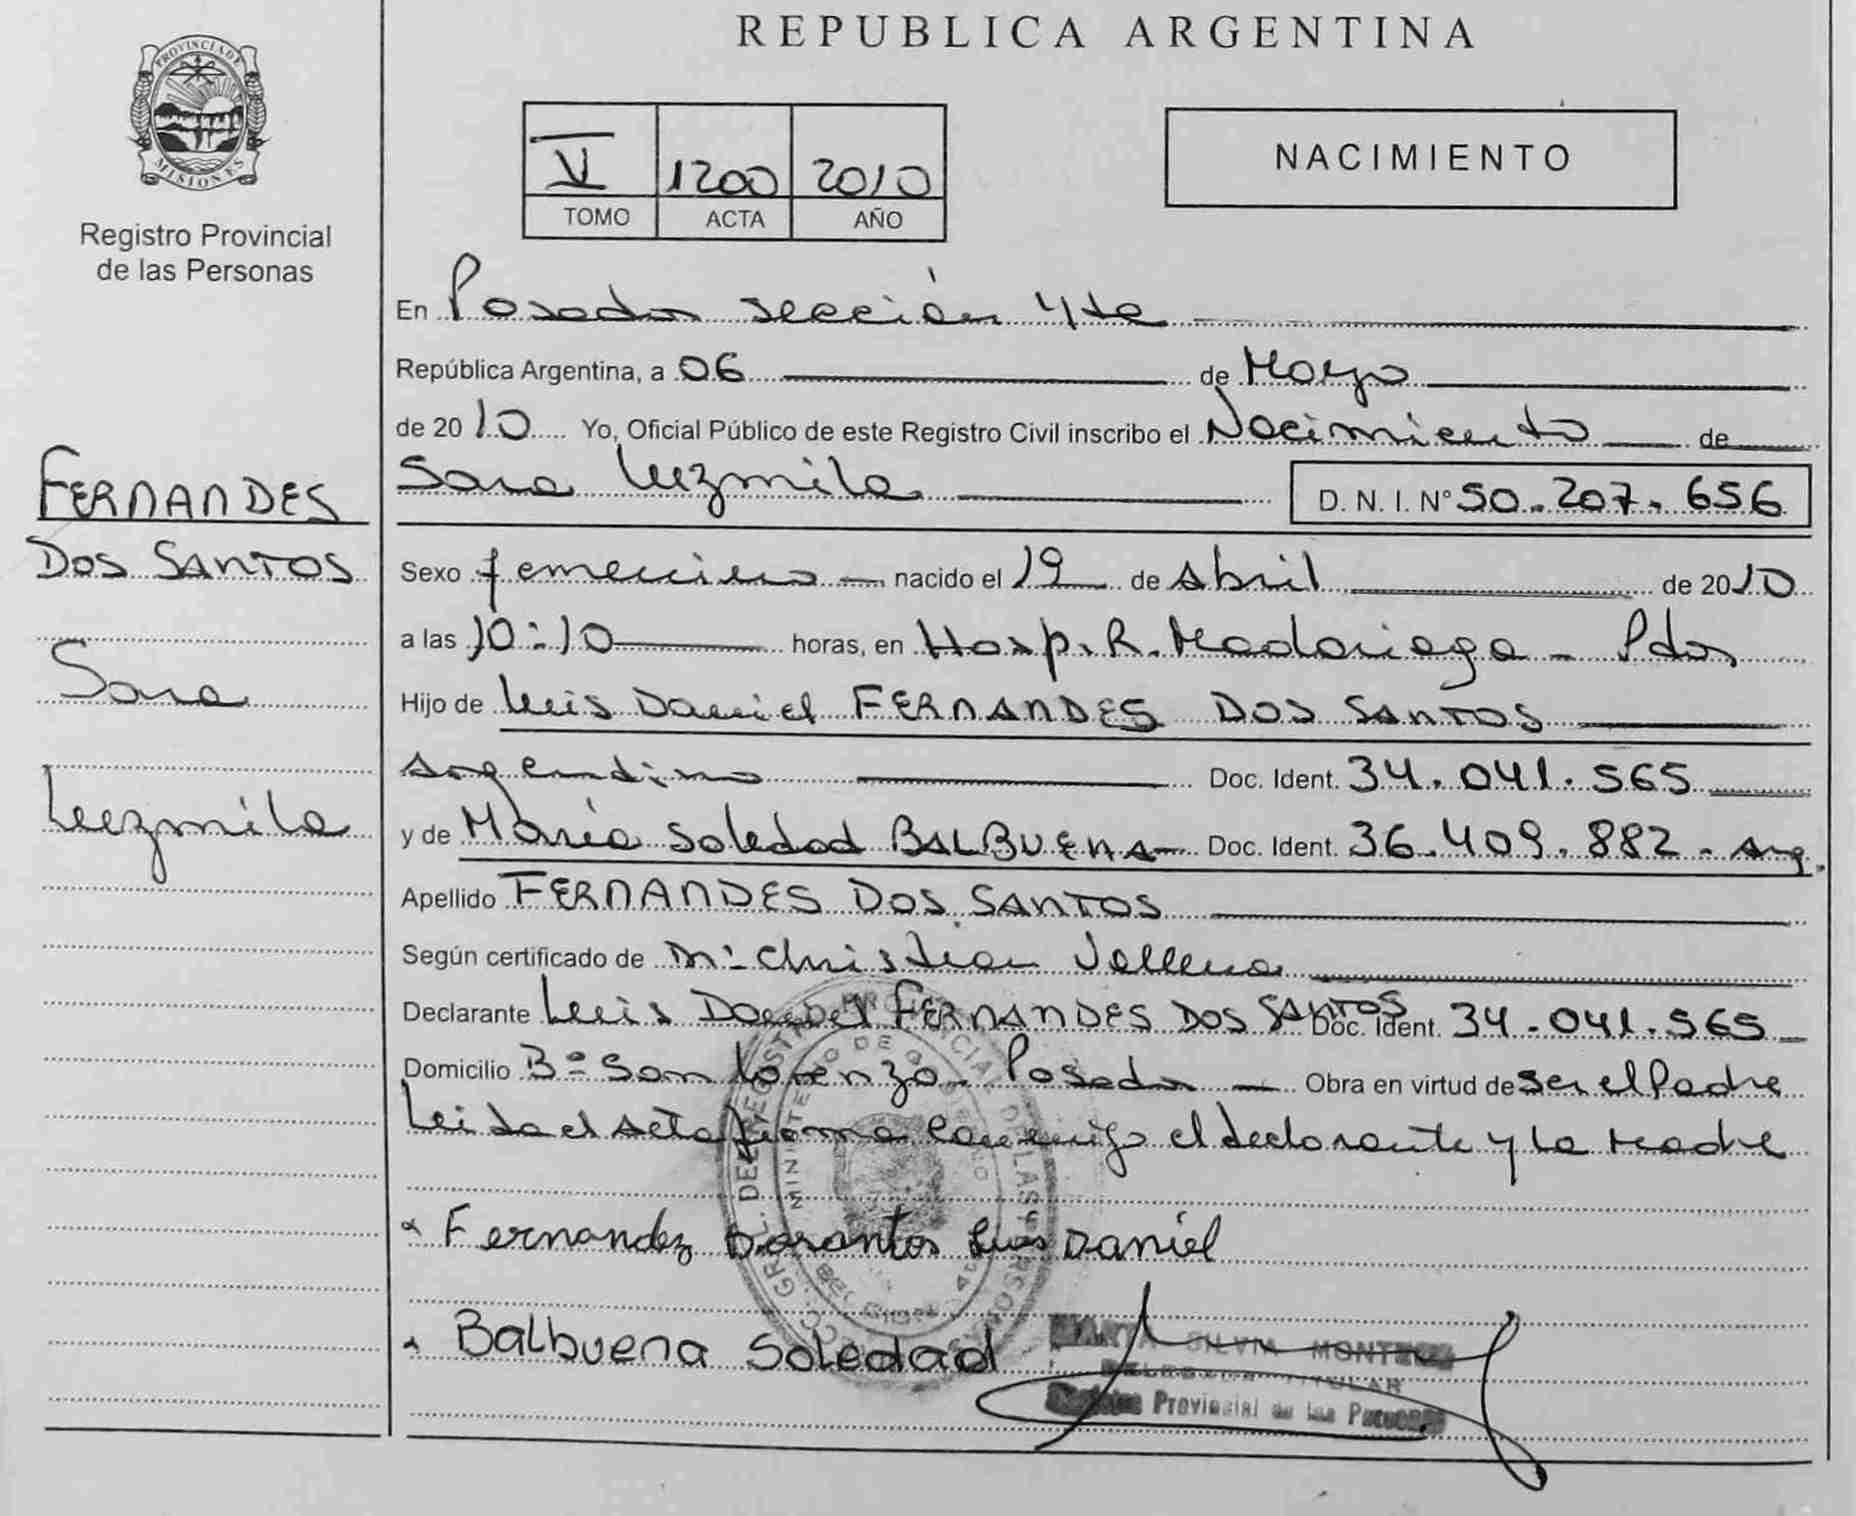 REPUBLICA ARGENTINA
PROVINCIA DE
MISIONES
Registro Provincial
de las Personas
V 1200 2010
TOMO ACTA AÑO
NACIMIENTO
FERNANDES
DOS SANTOS
Sara
Luzmila
En Posadas sección 4ta
República Argentina, a 06 de Mayo
de 2010 Yo, Oficial Público de este Registro Civil inscribo el Nacimiento de
Sara Luzmila D. N. I. Nº 50.207.656
Sexo femenino nacido el 19 de Abril de 2010
a las 10:10 horas, en Hosp. R. Madariaga - Pdas
Hijo de Luis Daniel FERNANDES DOS SANTOS
Argentino Doc. Ident. 34.041.565
y de María Soledad BALBUENA Doc. Ident. 36.409.882 - Arg.
Apellido FERNANDES DOS SANTOS
Según certificado de Christian
Declarante Luis Daniel FERNANDES DOS SANTOS Doc. Ident. 34.041.565
Domicilio Bº San Lorenzo - Posadas Obra en virtud de ser el Padre
Leida el Acta firma conmigo el declarante y la Madre
Fernandez Dosantos Luis Daniel
Balbuena Soledad
SILVIA
TITULAR
Provincial de las